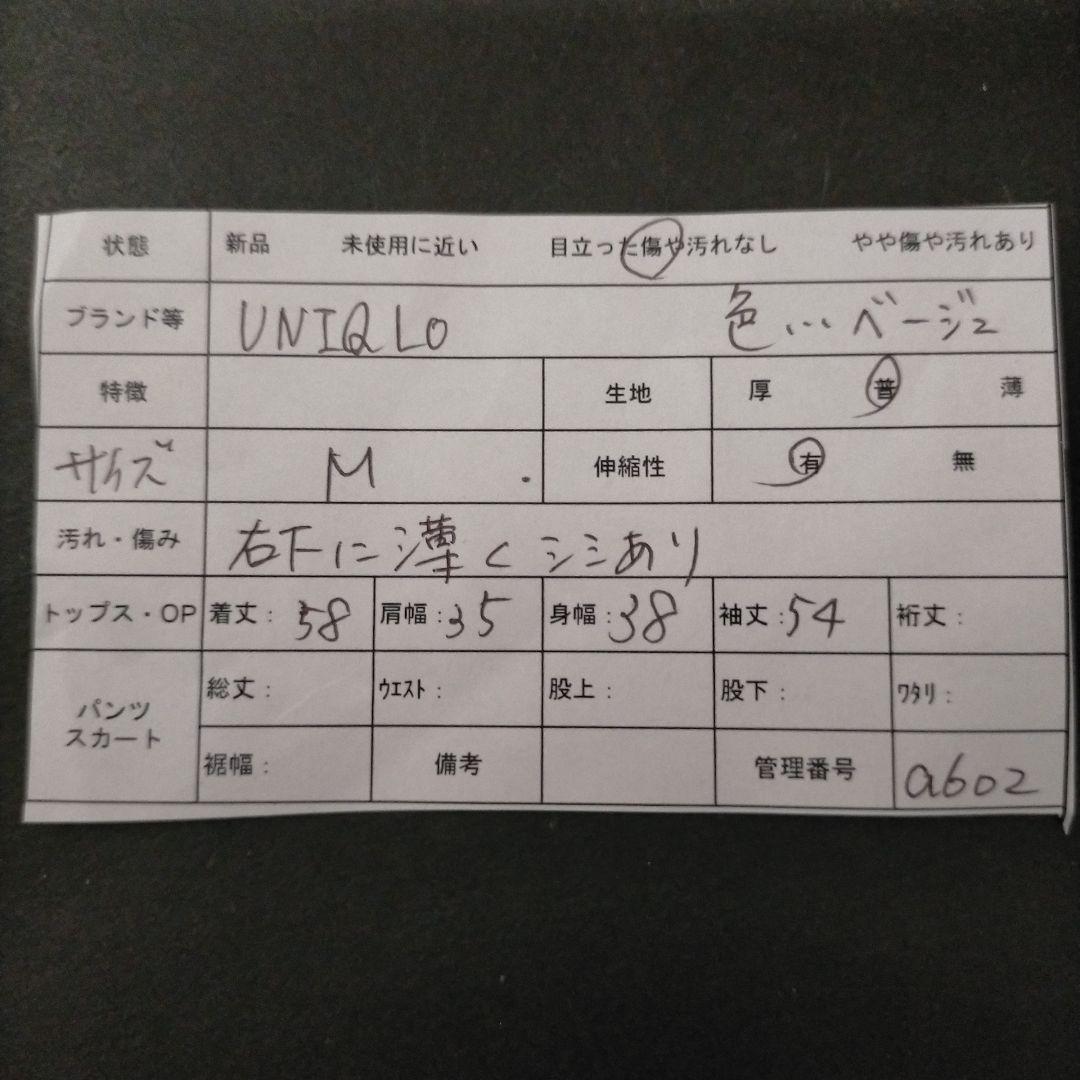 状態 新品 未使用に近い 目立った傷や汚れなし やや傷や汚れあり
ブランド等 UNIQLO 色…ベージュ
特徴 生地 厚 普 薄
サイズ M . 伸縮性 有 無
汚れ・傷み 右下に薄くシミあり
トップス・OP 着丈：58 肩幅：35 身幅：38 袖丈：54 裄丈：
パンツ スカート 総丈： ｳｴｽﾄ： 股上： 股下： ﾜﾀﾘ：
裾幅： 備考 管理番号 a602